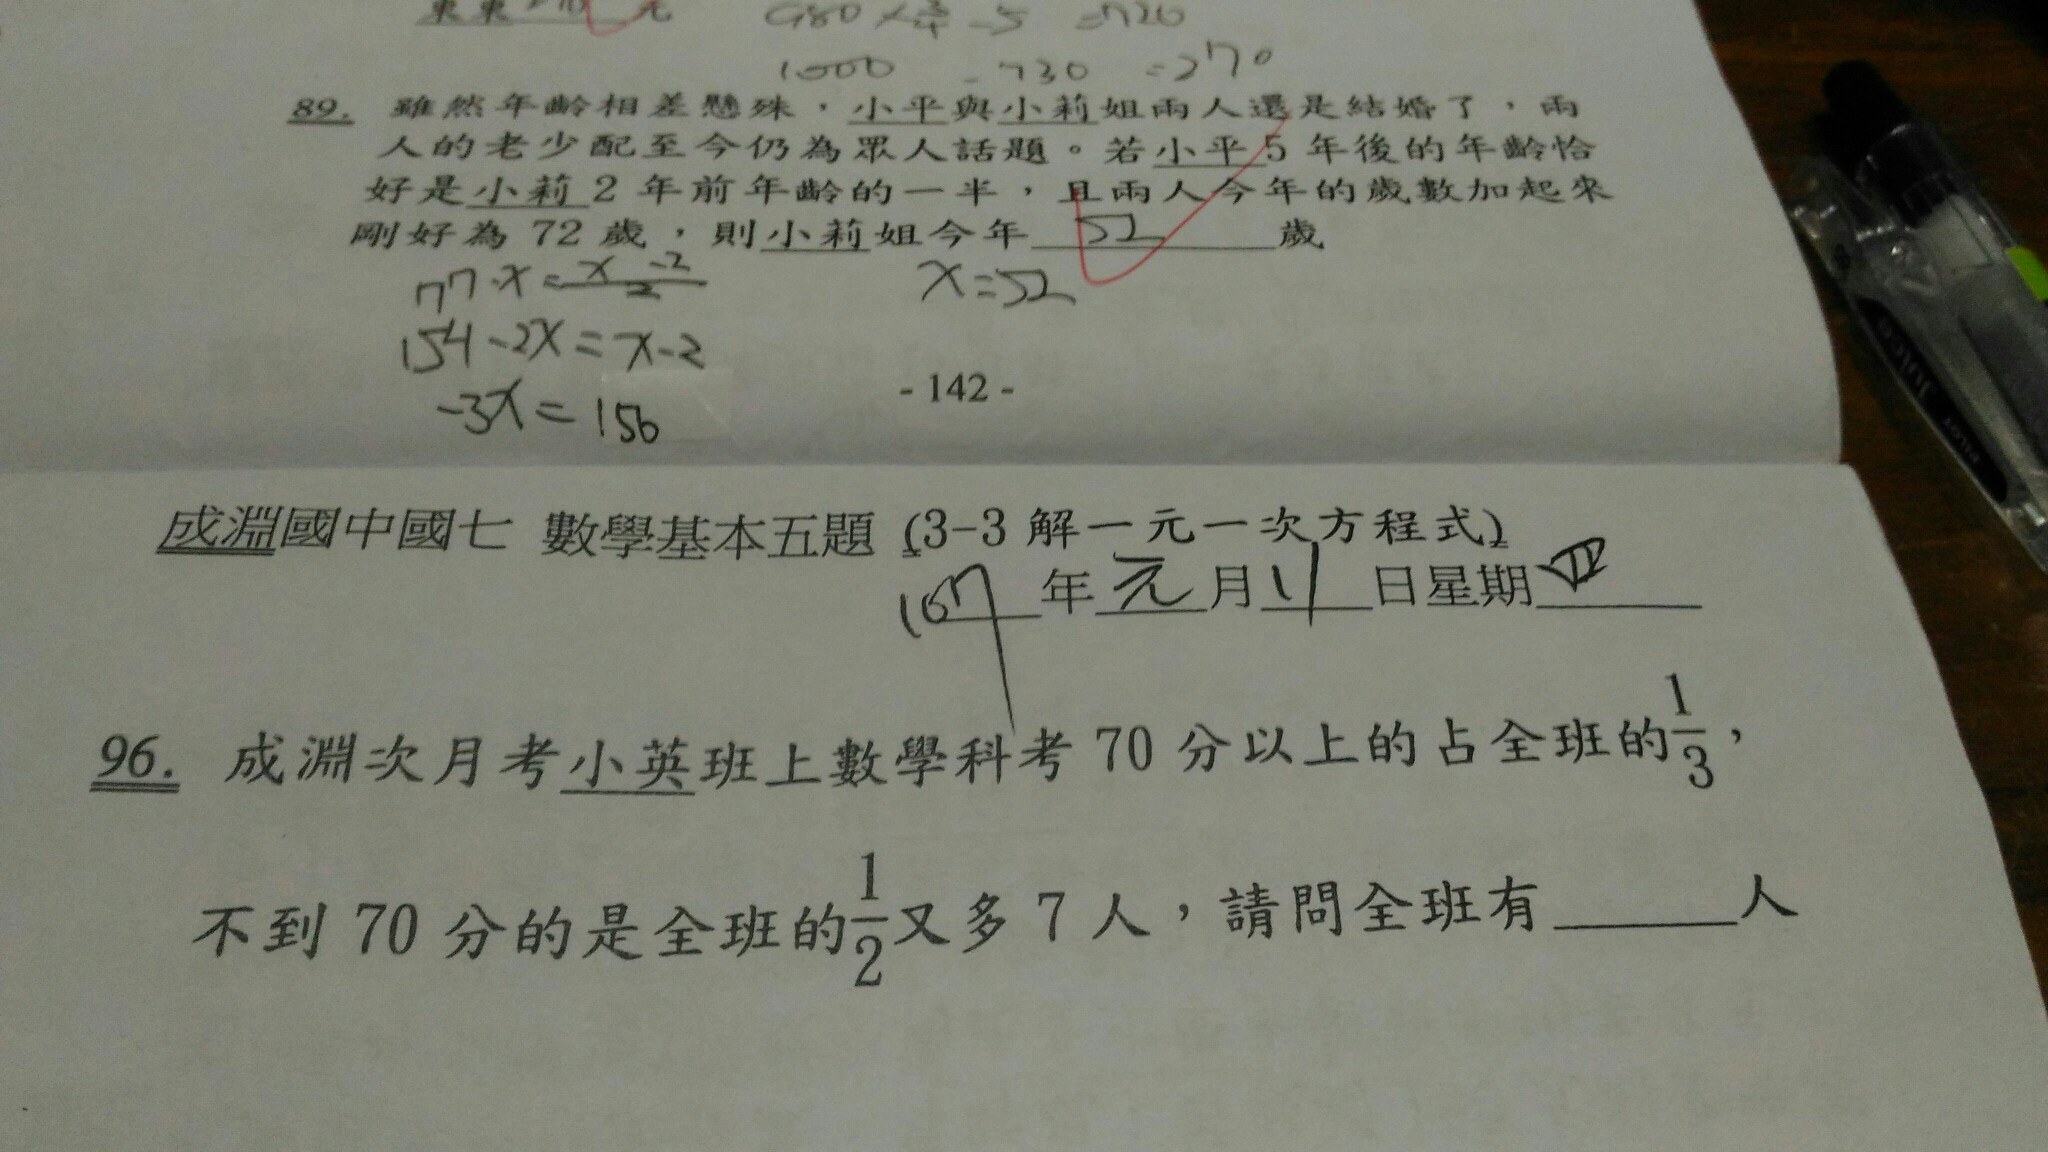 980 × 3/4 - 5 =
1000 - 730 = 270
89. 雖然年齡相差懸殊，小平與小莉姐兩人還是結婚了，兩
人的老少配至今仍為眾人話題。若小平5年後的年齡恰
好是小莉2年前年齡的一半，且兩人今年的歲數加起來
剛好為72歲，則小莉姐今年 52 歲
77-x=x-2/2
x=52
154-2x=x-2
-3x=156
- 142 -
成淵國中國七 數學基本五題 (3-3解一元一次方程式)
107年元月11日星期四
96. 成淵次月考小英班上數學科考70分以上的占全班的1/3，
不到70分的是全班的1/2又多7人，請問全班有______人